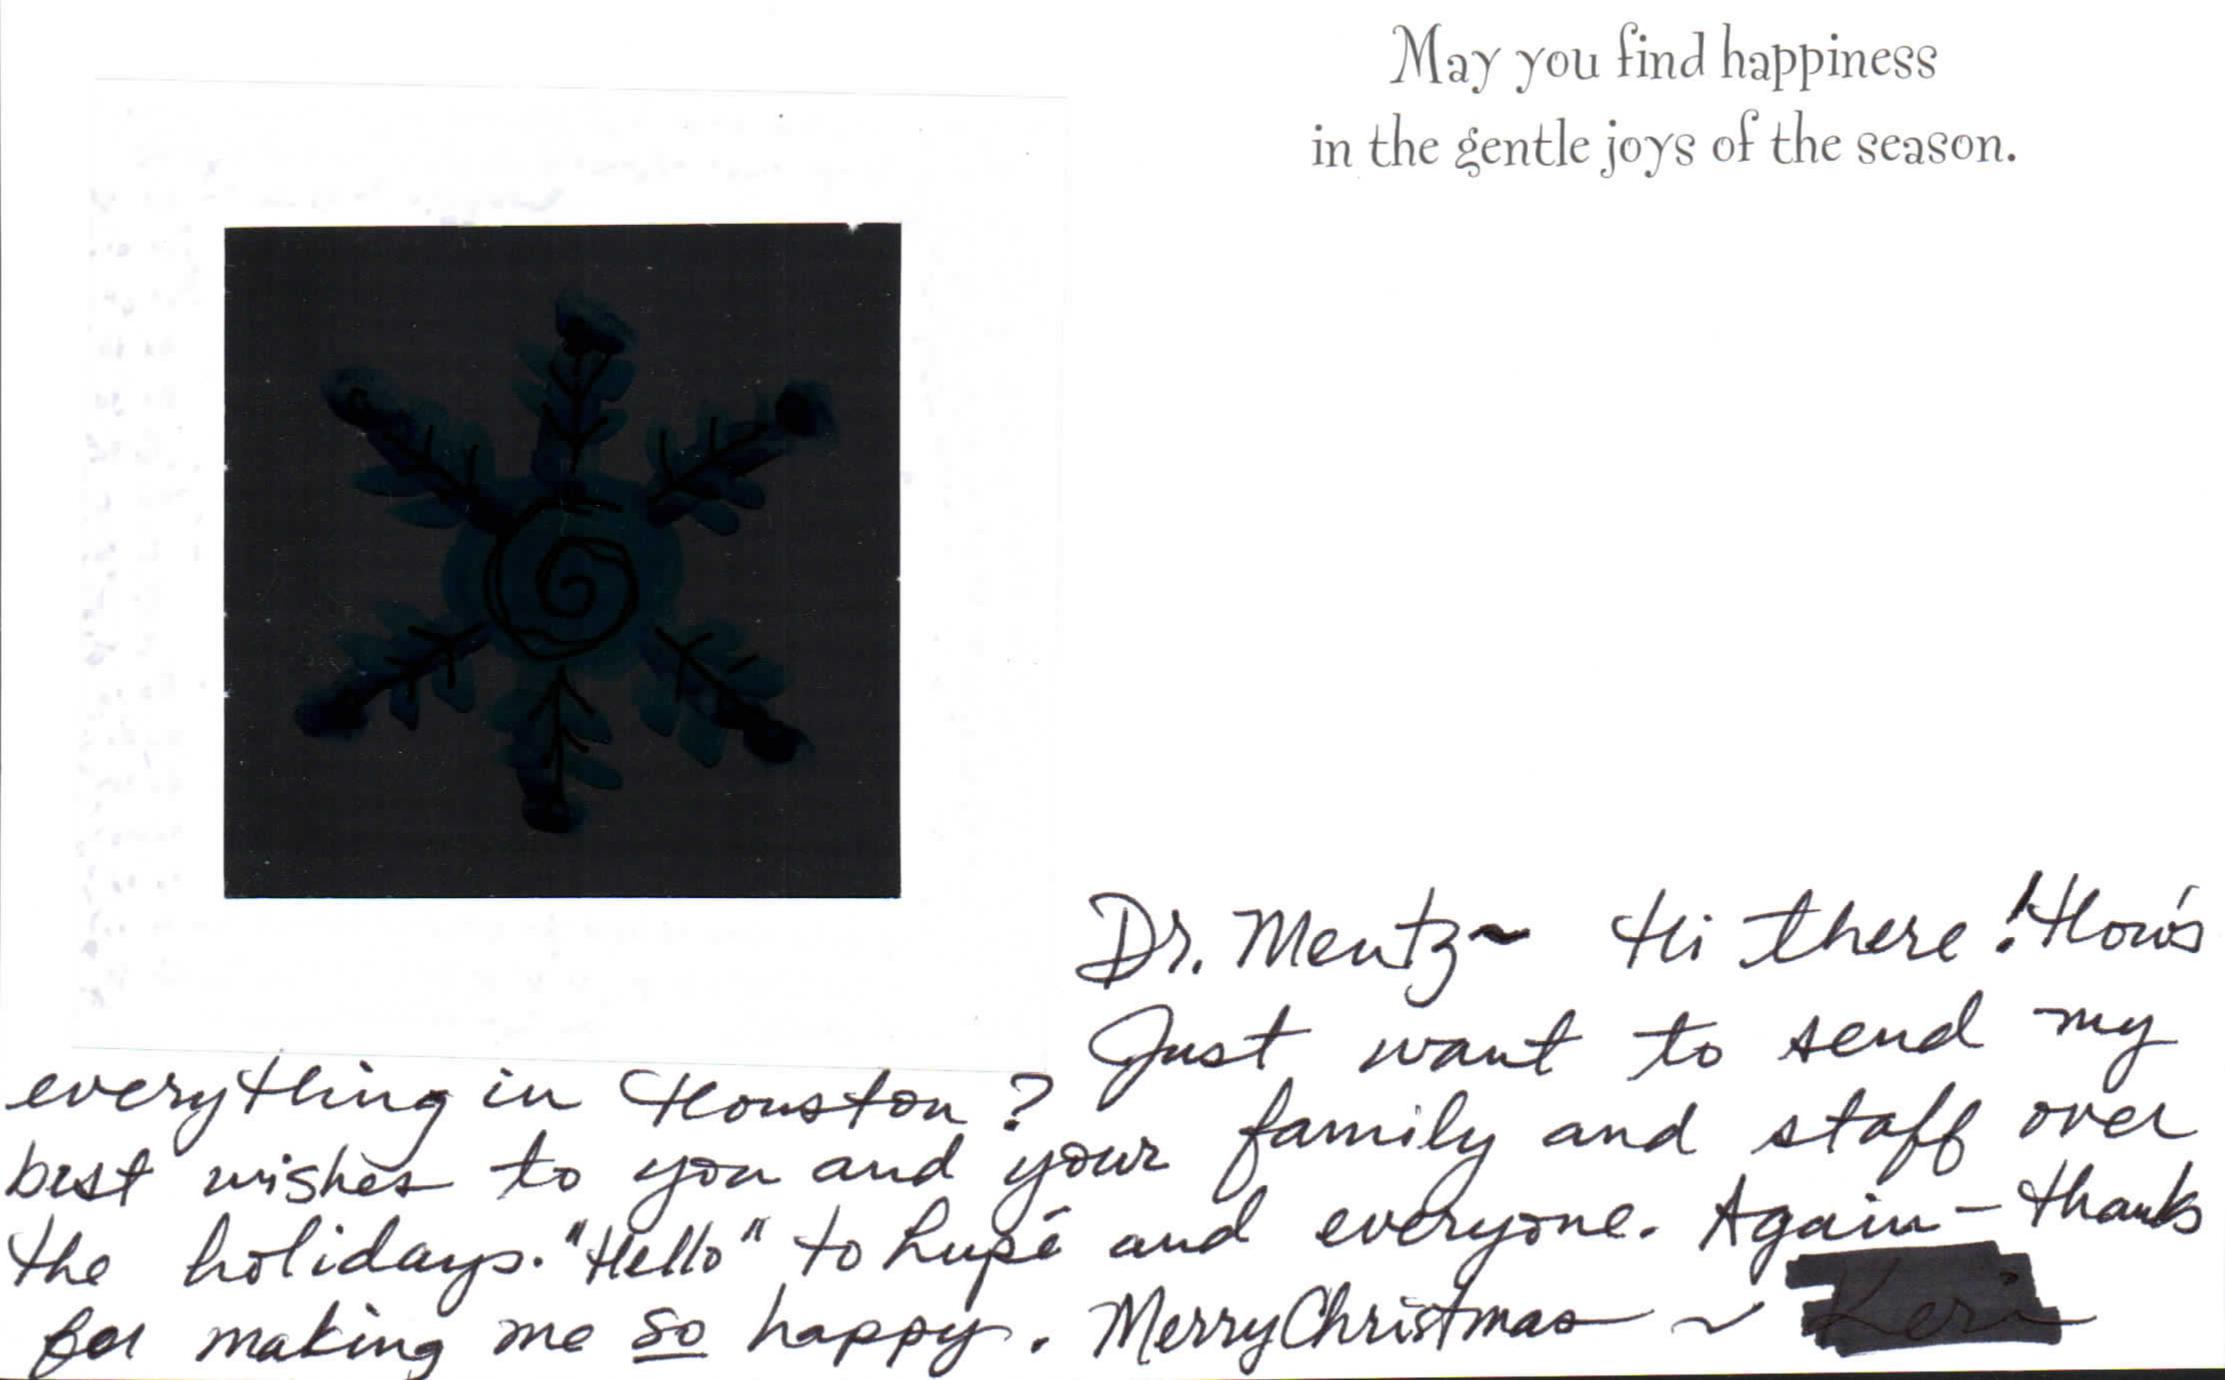 May you find happiness
in the gentle joys of the season.
Dr. Mentz~ Hi there! How's
everything in Houston? Just want to send my
best wishes to you and your family and staff over
the holidays. "Hello" to Lupé and everyone. Again – thanks
for making me so happy. Merry Christmas ~